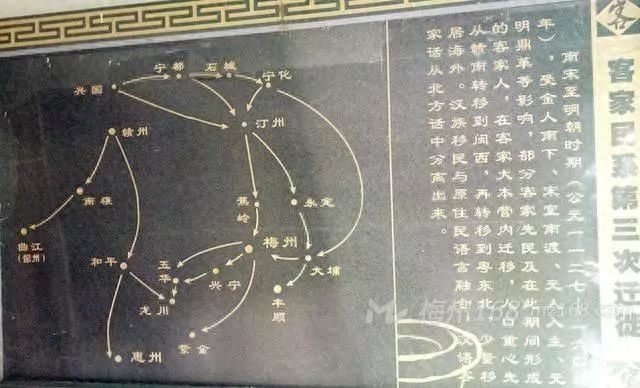 客
客家民系第三次迁
南宋至明朝时期（公元一一二七—一六四
年），受金人南下、宋室南渡、元人入主、元
明鼎革等影响，部分客家先民及在此期间形成
的客家人，在客家大本营内迁移，人口重心先
从赣南转移到闽西，再转移到粤东北，少量移
居海外。汉族移民与原住民语言融合，汉语客
家话从北方话中分离出来。
宁都
石城
宁化
兴国
赣州
汀州
南雄
曲江
(韶州)
蕉岭
永定
梅州
大埔
和平
五华
兴宁
龙川
丰顺
紫金
惠州
梅州168 mz168.com